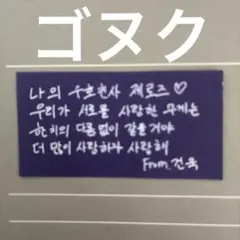 ゴヌク
나의 수호천사 제로즈♡
우리가 서로를 사랑한 무게는
한치의 다름없이 같을거야
더 많이 사랑하자 사랑해
From.건욱